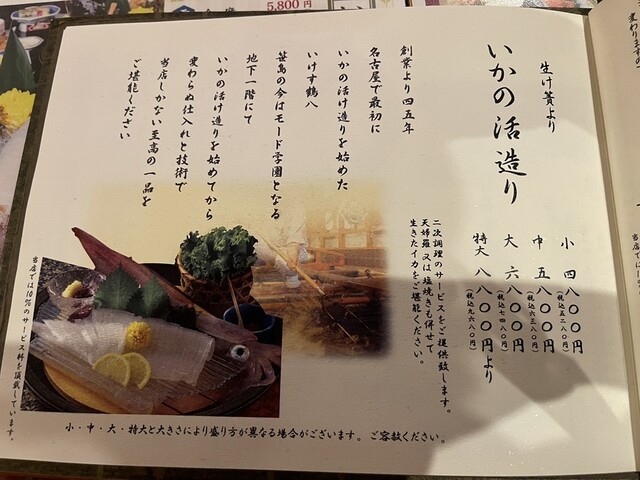 生け簀より
いかの活造り
小 四八〇〇円
(税込五二八〇円)
中 五八〇〇円
(税込六三八〇円)
大 六八〇〇円
(税込七四八〇円)
特大 八八〇〇円より
(税込九六八〇円)
二次調理のサービスをご提供致します。
天婦羅又は塩焼きも併せて
生きたイカをご堪能ください。
創業より四五年
名古屋で最初に
いかの活け造りを始めた
いけす鶴八
笹島の今はモード学園となる
地下一階にて
いかの活け造りを始めてから
変わらぬ仕入れと技術で
当店しかない至高の一品を
ご堪能ください
小・中・大・特大と大きさにより盛り方が異なる場合がございます。ご容赦ください。
当店では10%のサービス料を頂戴しています。
5,800円